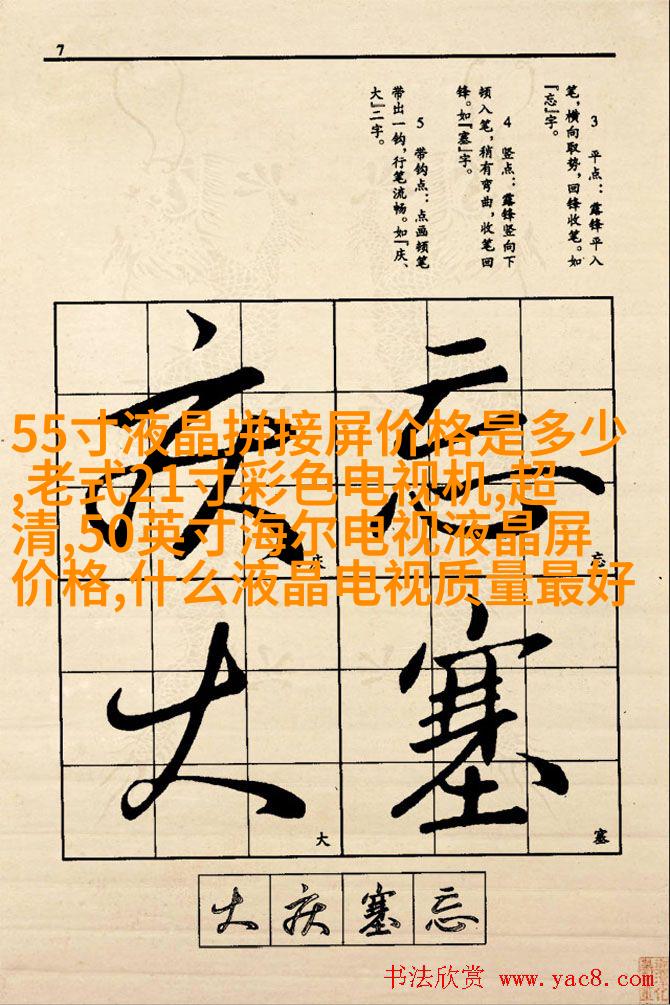 7
3 平点：露锋平入
笔，横向取势，回锋收笔。如
『忘』字。
4 竖点：露锋竖向下
顿入笔，稍有弯曲，收笔回
锋。如『塞』字。
5 带钩点：点画顿笔
带出一钩，行笔流畅。如『庆、
大』二字。
庆 忘
55寸液晶拼接屏价格是多少
,老式21寸彩色电视机,超
清,50英寸海尔电视液晶屏
价格,什么液晶电视质量最好
忘
大 塞
大
塞
大 庆 塞 忘
书法欣赏 www.yac8.com